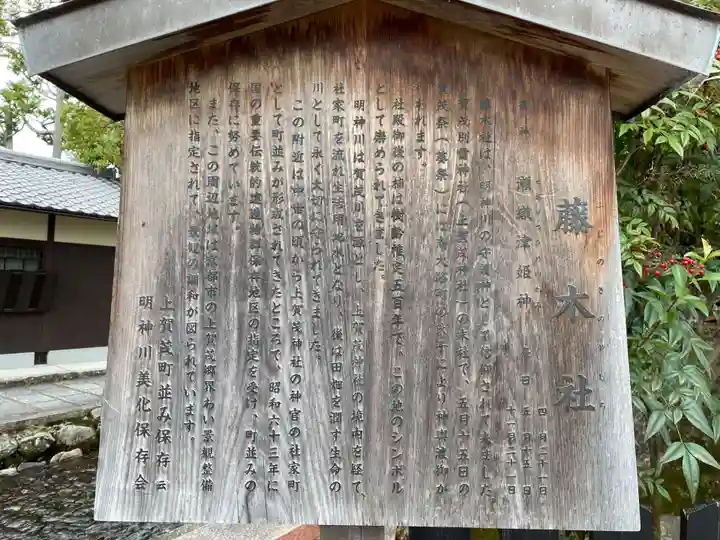 藤木社
ふじのきのやしろ
祭神 瀬織津姫神 祭日
四月二十一日
五月十五日
十一月二十一日
藤木社は、明神川の守護神として信仰されて来ました
賀茂別雷神社(上賀茂神社)の末社で、五月十五日の
賀茂祭(葵祭)には
より神輿渡御が
われます。
社殿御後の楠は樹齢推定五百年で、この地のシンボル
として崇められてきました。
明神川は賀茂川を源とし、上賀茂神社の境内を経て、
社家町を流れ生活用水となり、後は田畑を潤す生命の
川として永く大切に守られてきました。
この附近は中世の頃から上賀茂神社の神官の社家町
として町並みが形成されてきたところで、昭和六十三年に
国の重要伝統的建造物群保存地区の指定を受け、町並みの
保存に努めています。
また、この周辺地域は京都市の上賀茂郷界わい景観整備
地区に指定されて、景観の調和が図られています。
上賀茂町並み保存会
明神川美化保存会